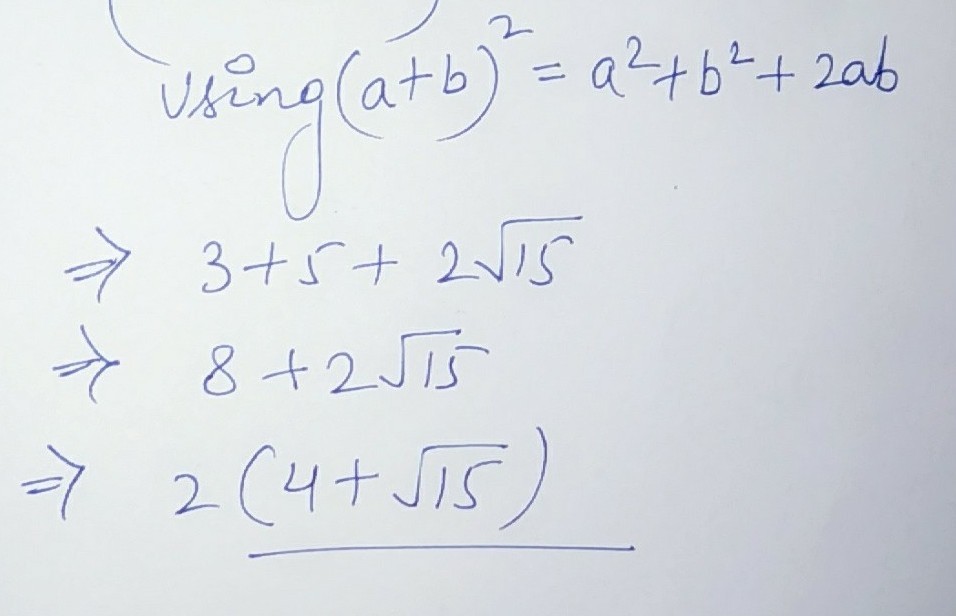 Using (a+b)² = a²+b²+2ab
⇒ 3+5+2√15
⇒ 8+2√15
⇒ 2(4+√15)